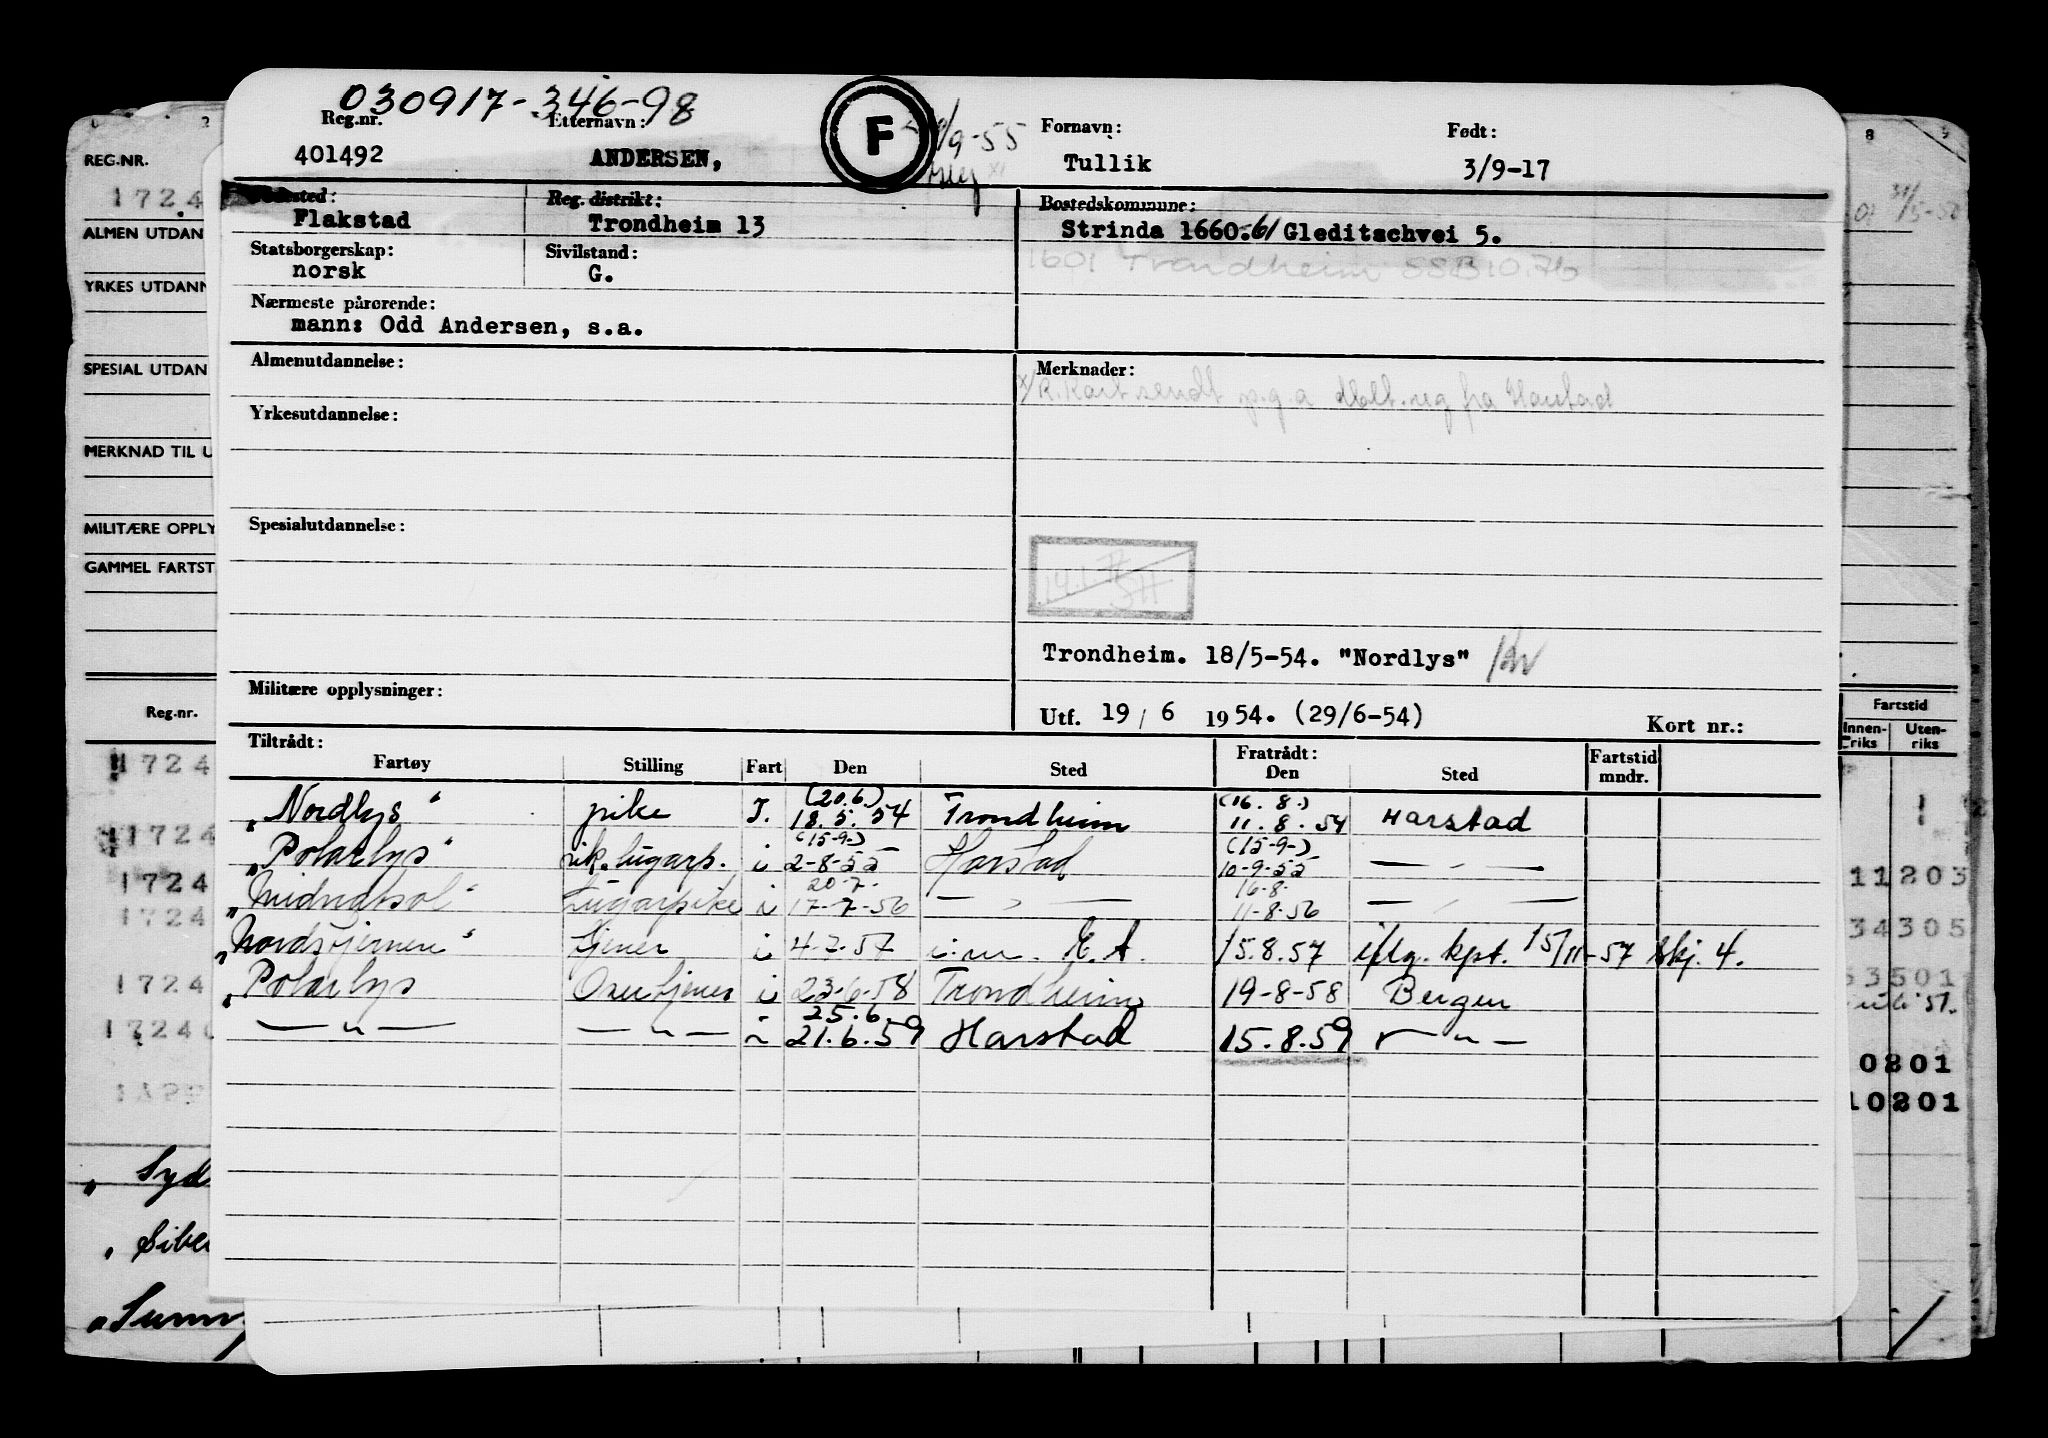 030917-346-98
Reg.nr. Etternavn: F 9-55 Fornavn: Født:
401492 ANDERSEN, Tullik 3/9-17
Reg. distrikt: Bostedskommune:
Flakstad Trondheim 13 Strinda 1660.61 Gleditschvei 5.
Statsborgerskap: Sivilstand: 1601 Trondheim SSB 10.76
norsk G.
Nærmeste pårørende:
mann: Odd Andersen, s.a.
Almenutdannelse: Merknader:
x/R.Kort sendt p.g.a dblt.reg fra Harstad
Yrkesutdannelse:
Spesialutdannelse:
Trondheim. 18/5-54. "Nordlys"
Militære opplysninger:
Utf. 19 / 6 1954. (29/6-54) Kort nr.:
Tiltrådt: Fratrådt: Fartstid
Fartøy Stilling Fart Den Sted Den Sted mndr.
(20.6.) (16.8.)
"Nordlys" pike I. 18.5.54 Trondheim 11.8.54 Harstad
(15-9-) (15-9-)
"Polarlys" lugarp. i 2-8-55 Harstad 10-9-55 — " —
20-7- 16-8-
"Midnatsol" Lugarpike i 17-7-56 — " — 11-8-56 — " —
"Nordstjernen" tjener i 4-7-57 15.8.57 iflg. kpt. 15/11-57 skj. 4.
"Polarlys i 23-6-58 Trondheim 19-8-58 Bergen
25.6.
— " — — " — i 21.6.59 Harstad 15.8.59 — " —
REG.NR.
1724
ALMEN UTDAN
YRKES UTDANN
SPESIAL UTDAN
MERKNAD TIL U
MILITÆRE OPPLY
GAMMEL FARTST
Reg.nr.
1724
1724
1724
1724
1724
1724
" Syd
" Sibe
8
31/5-5
Fartstid
Innen-riks Uten-riks
11203
34305
53501
0201
10201